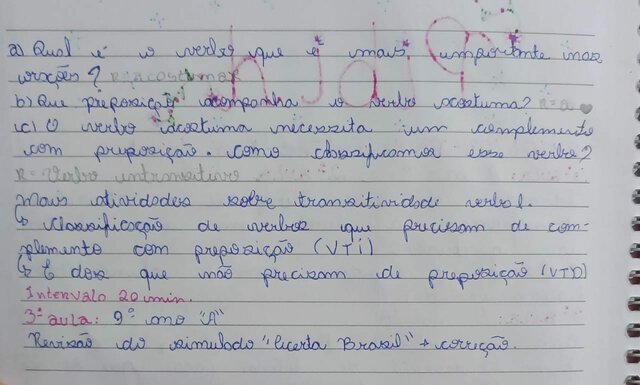 a) Qual é o verbo que é mais importante nas
orações? R: acostumar
b) Que preposição acompanha o verbo acostuma? R = a
c) O verbo acostuma necessita um complemento
com preposição. Como classificamos esse verbo?
R = Verbo intransitivo
Mais atividades sobre transitividade verbal.
↳ Classificação de verbos que precisam de com-
plemento com preposição (VTI)
↳ E dos que não precisam de preposição (VTD)
Intervalo 20 min.
3ª aula: 9º ano "A"
Revisão do simulado "Acerta Brasil" + correção.